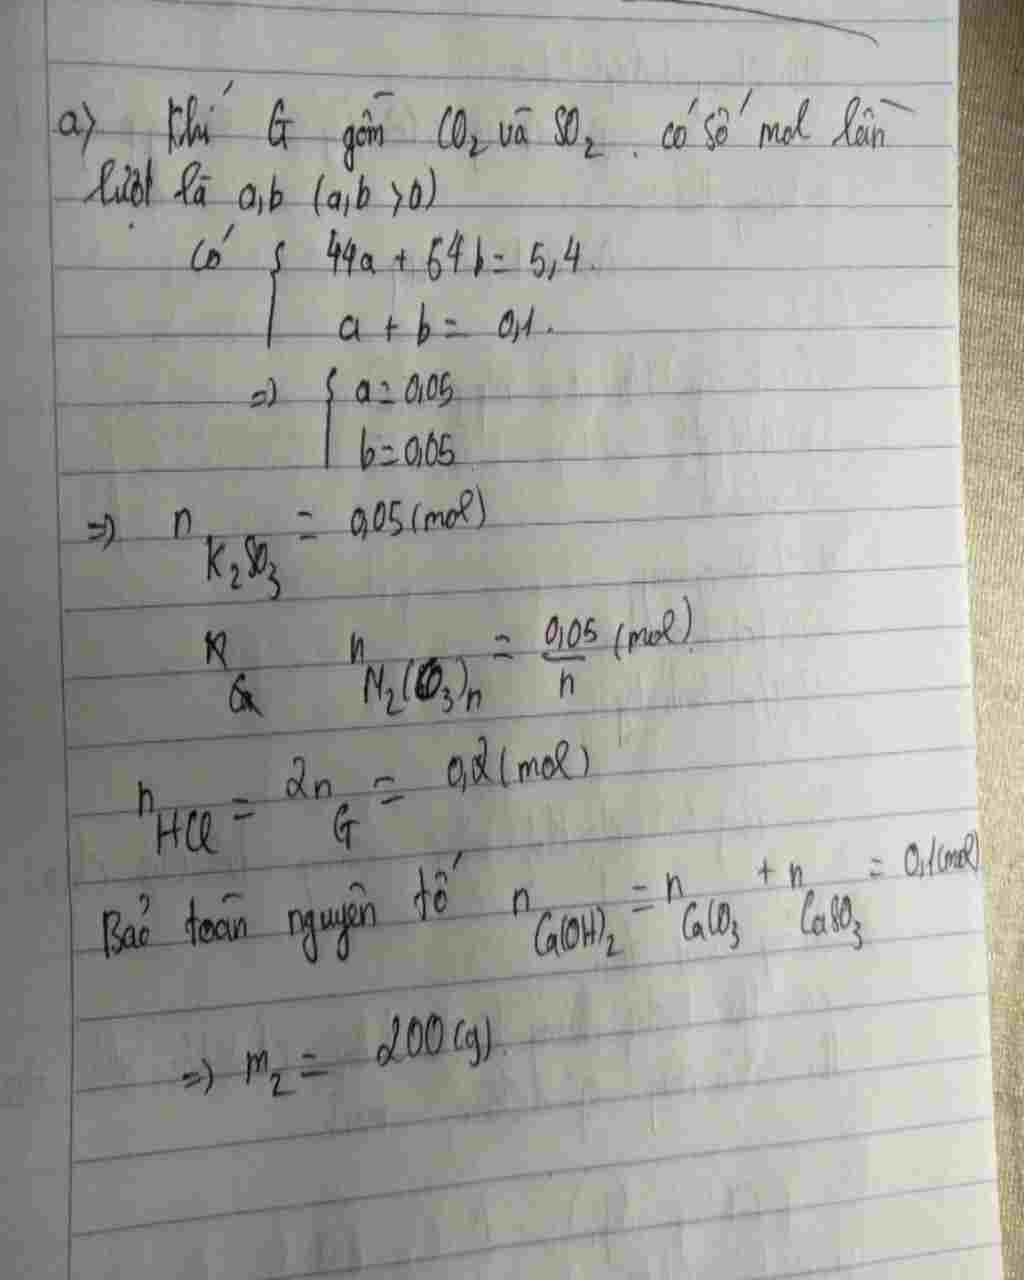 a) Khí G gồm CO₂ và SO₂. có số mol lần
lượt là a,b (a,b >0)
Có { 44a + 64b = 5,4.
a + b = 0,1.
=> { a = 0,05
b = 0,05
=> n K₂SO₃ = 0,05 (mol)
n N₂(CO₃)n = 0,05/n (mol).
n HCl = 2n G = 0,2 (mol)
Bảo toàn nguyên tố n Ca(OH)₂ = n CaCO₃ + n CaSO₃ = 0,1 (mol)
=> m₂ = 200 (g).